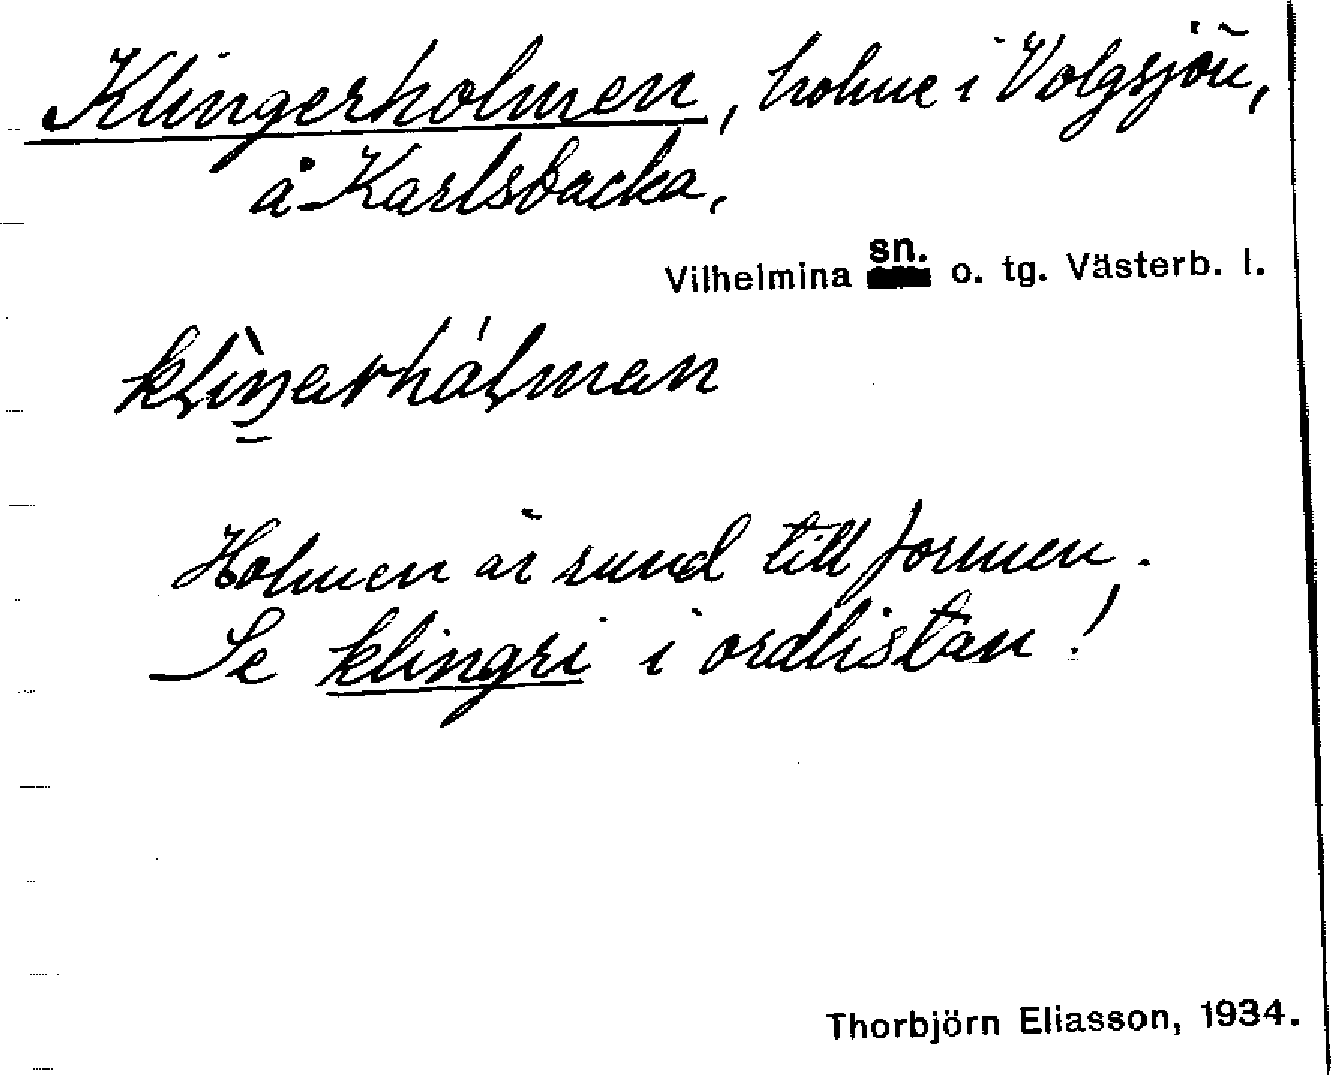 Klingerholmen, holme i Volgsjön,
å Karlsbacka,
Vilhelmina sn. o. tg. Västerb. l.
klìŋerhálmen
Holmen är rund till formen.
Se klingri i ordlistan!
Thorbjörn Eliasson, 1934.